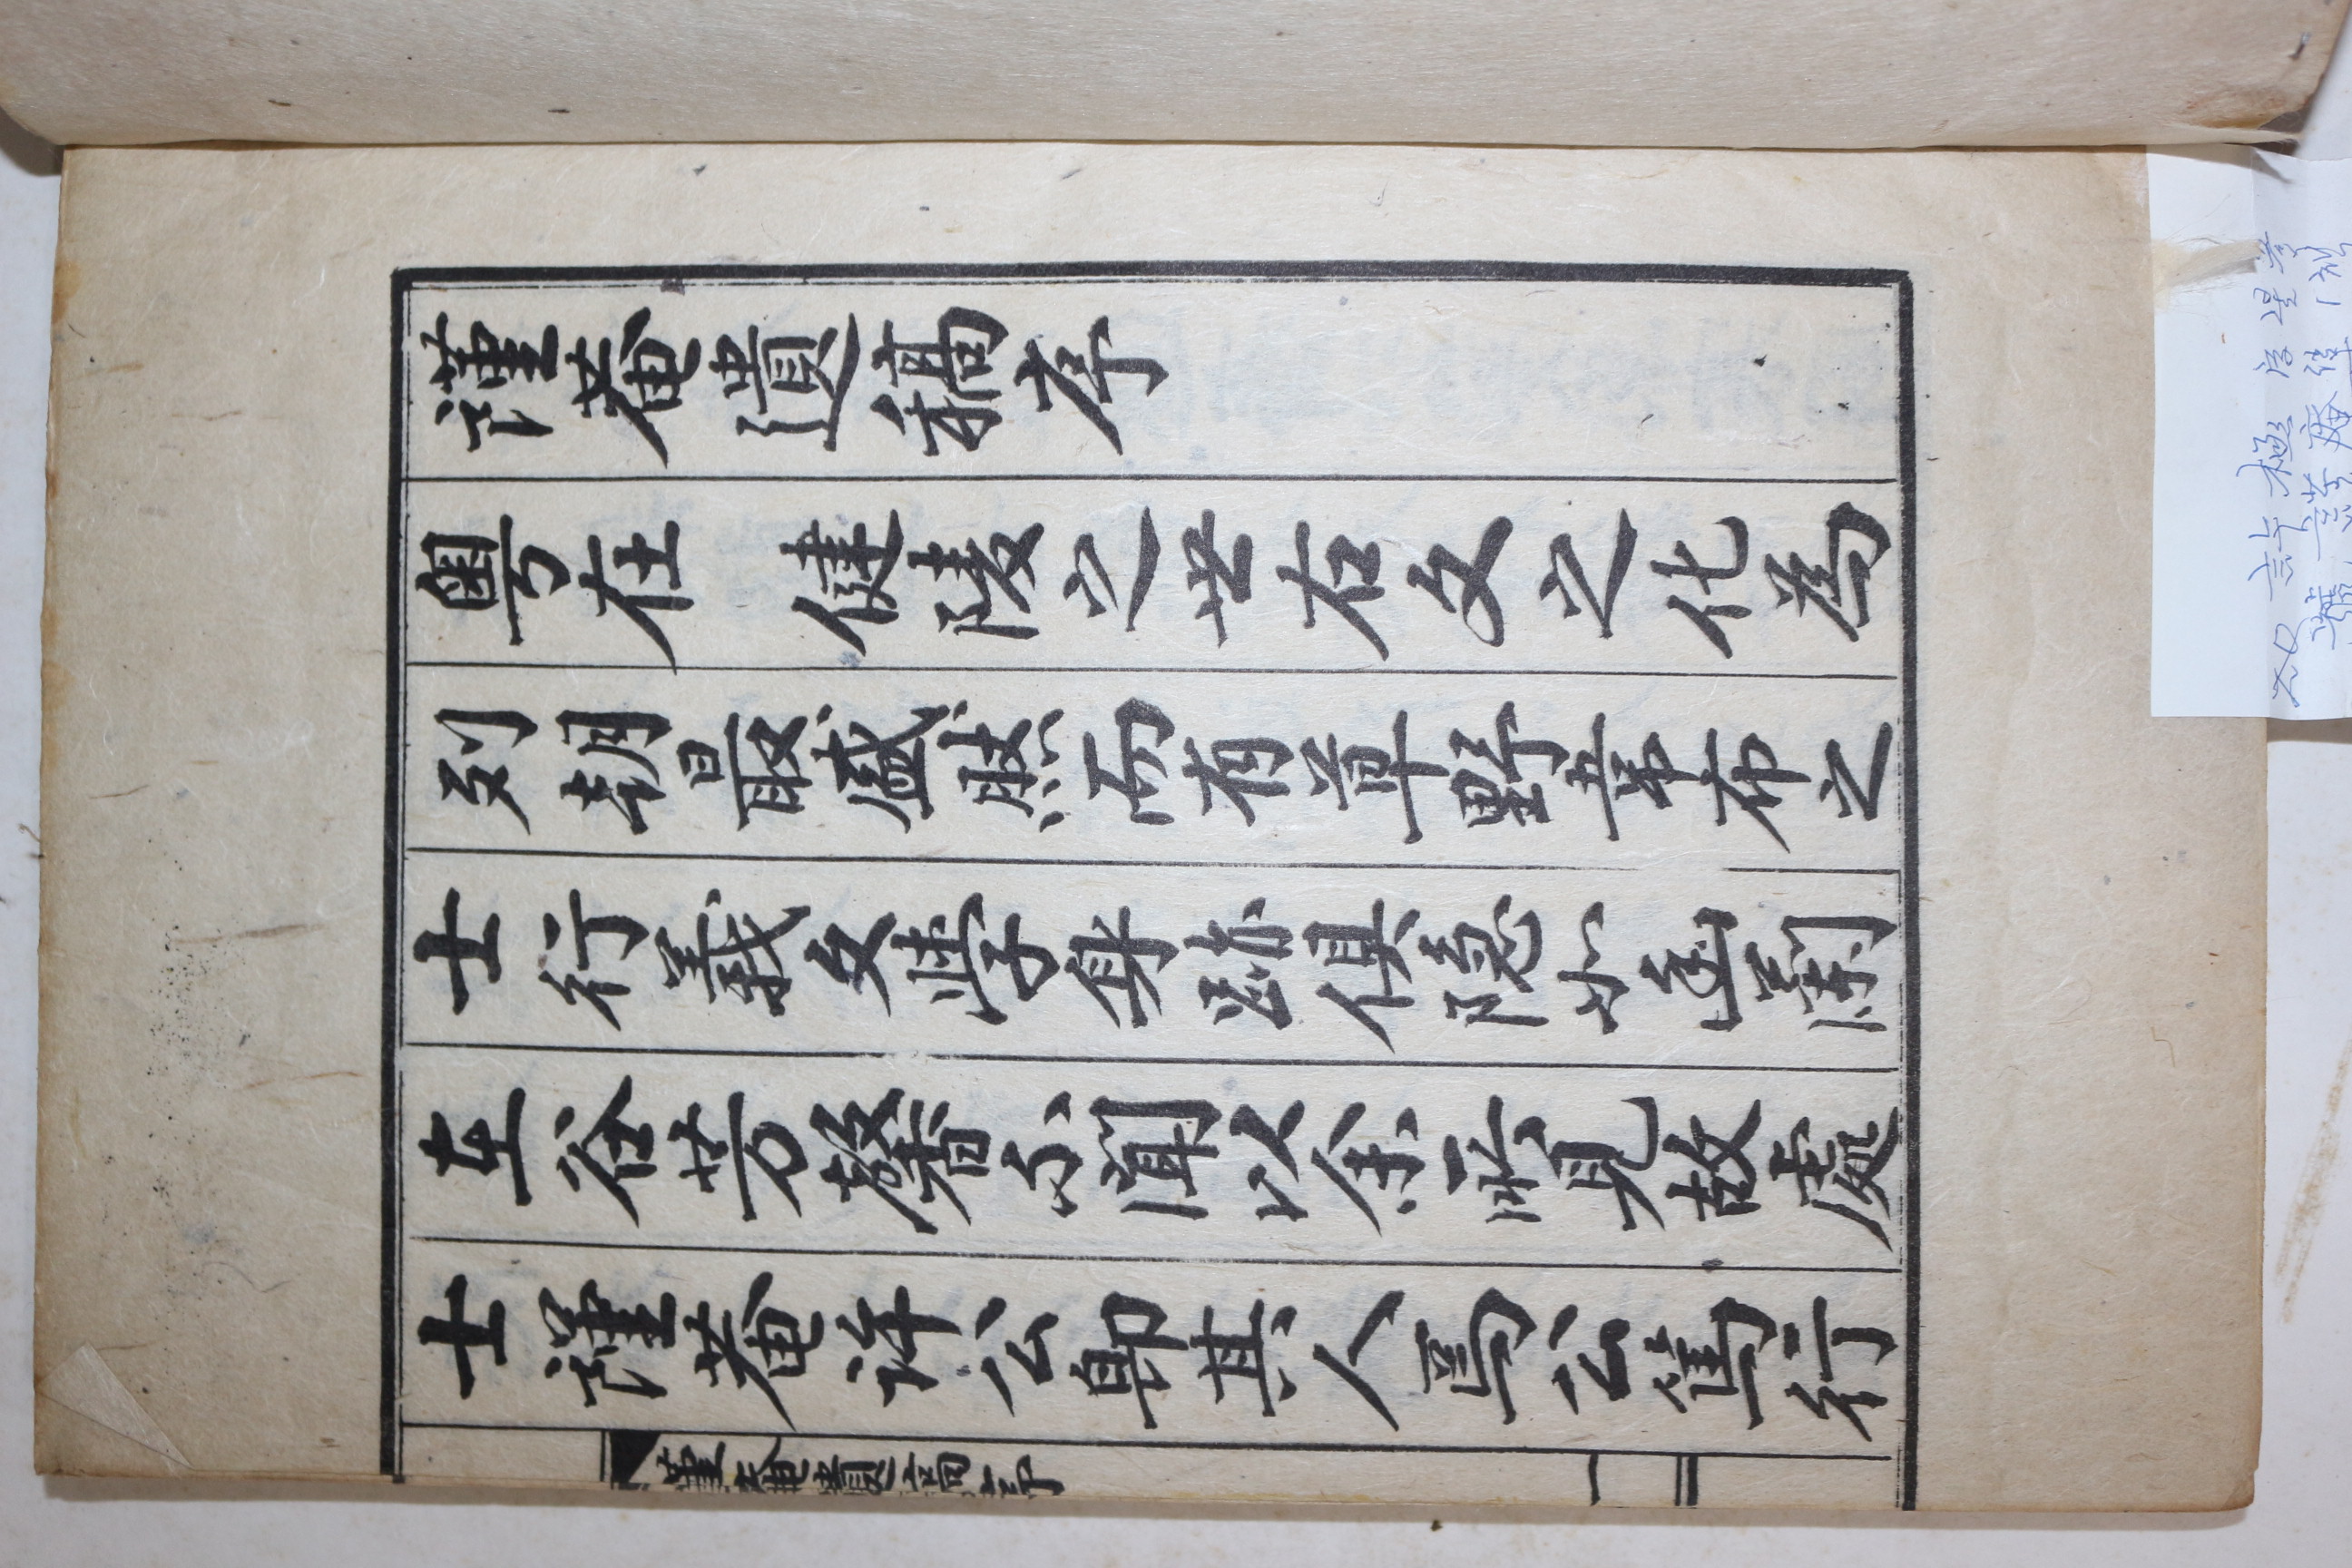 謹菴遺稿序
粤在 健陵之世右文之化為
列朝最盛然而有草野韋布之
士行義文學身跡俱隱如幽蘭
在谷芳馨不聞以余所見故處
士謹菴許公卽其人焉公篤行
謹菴遺稿序
一
許極
謹菴